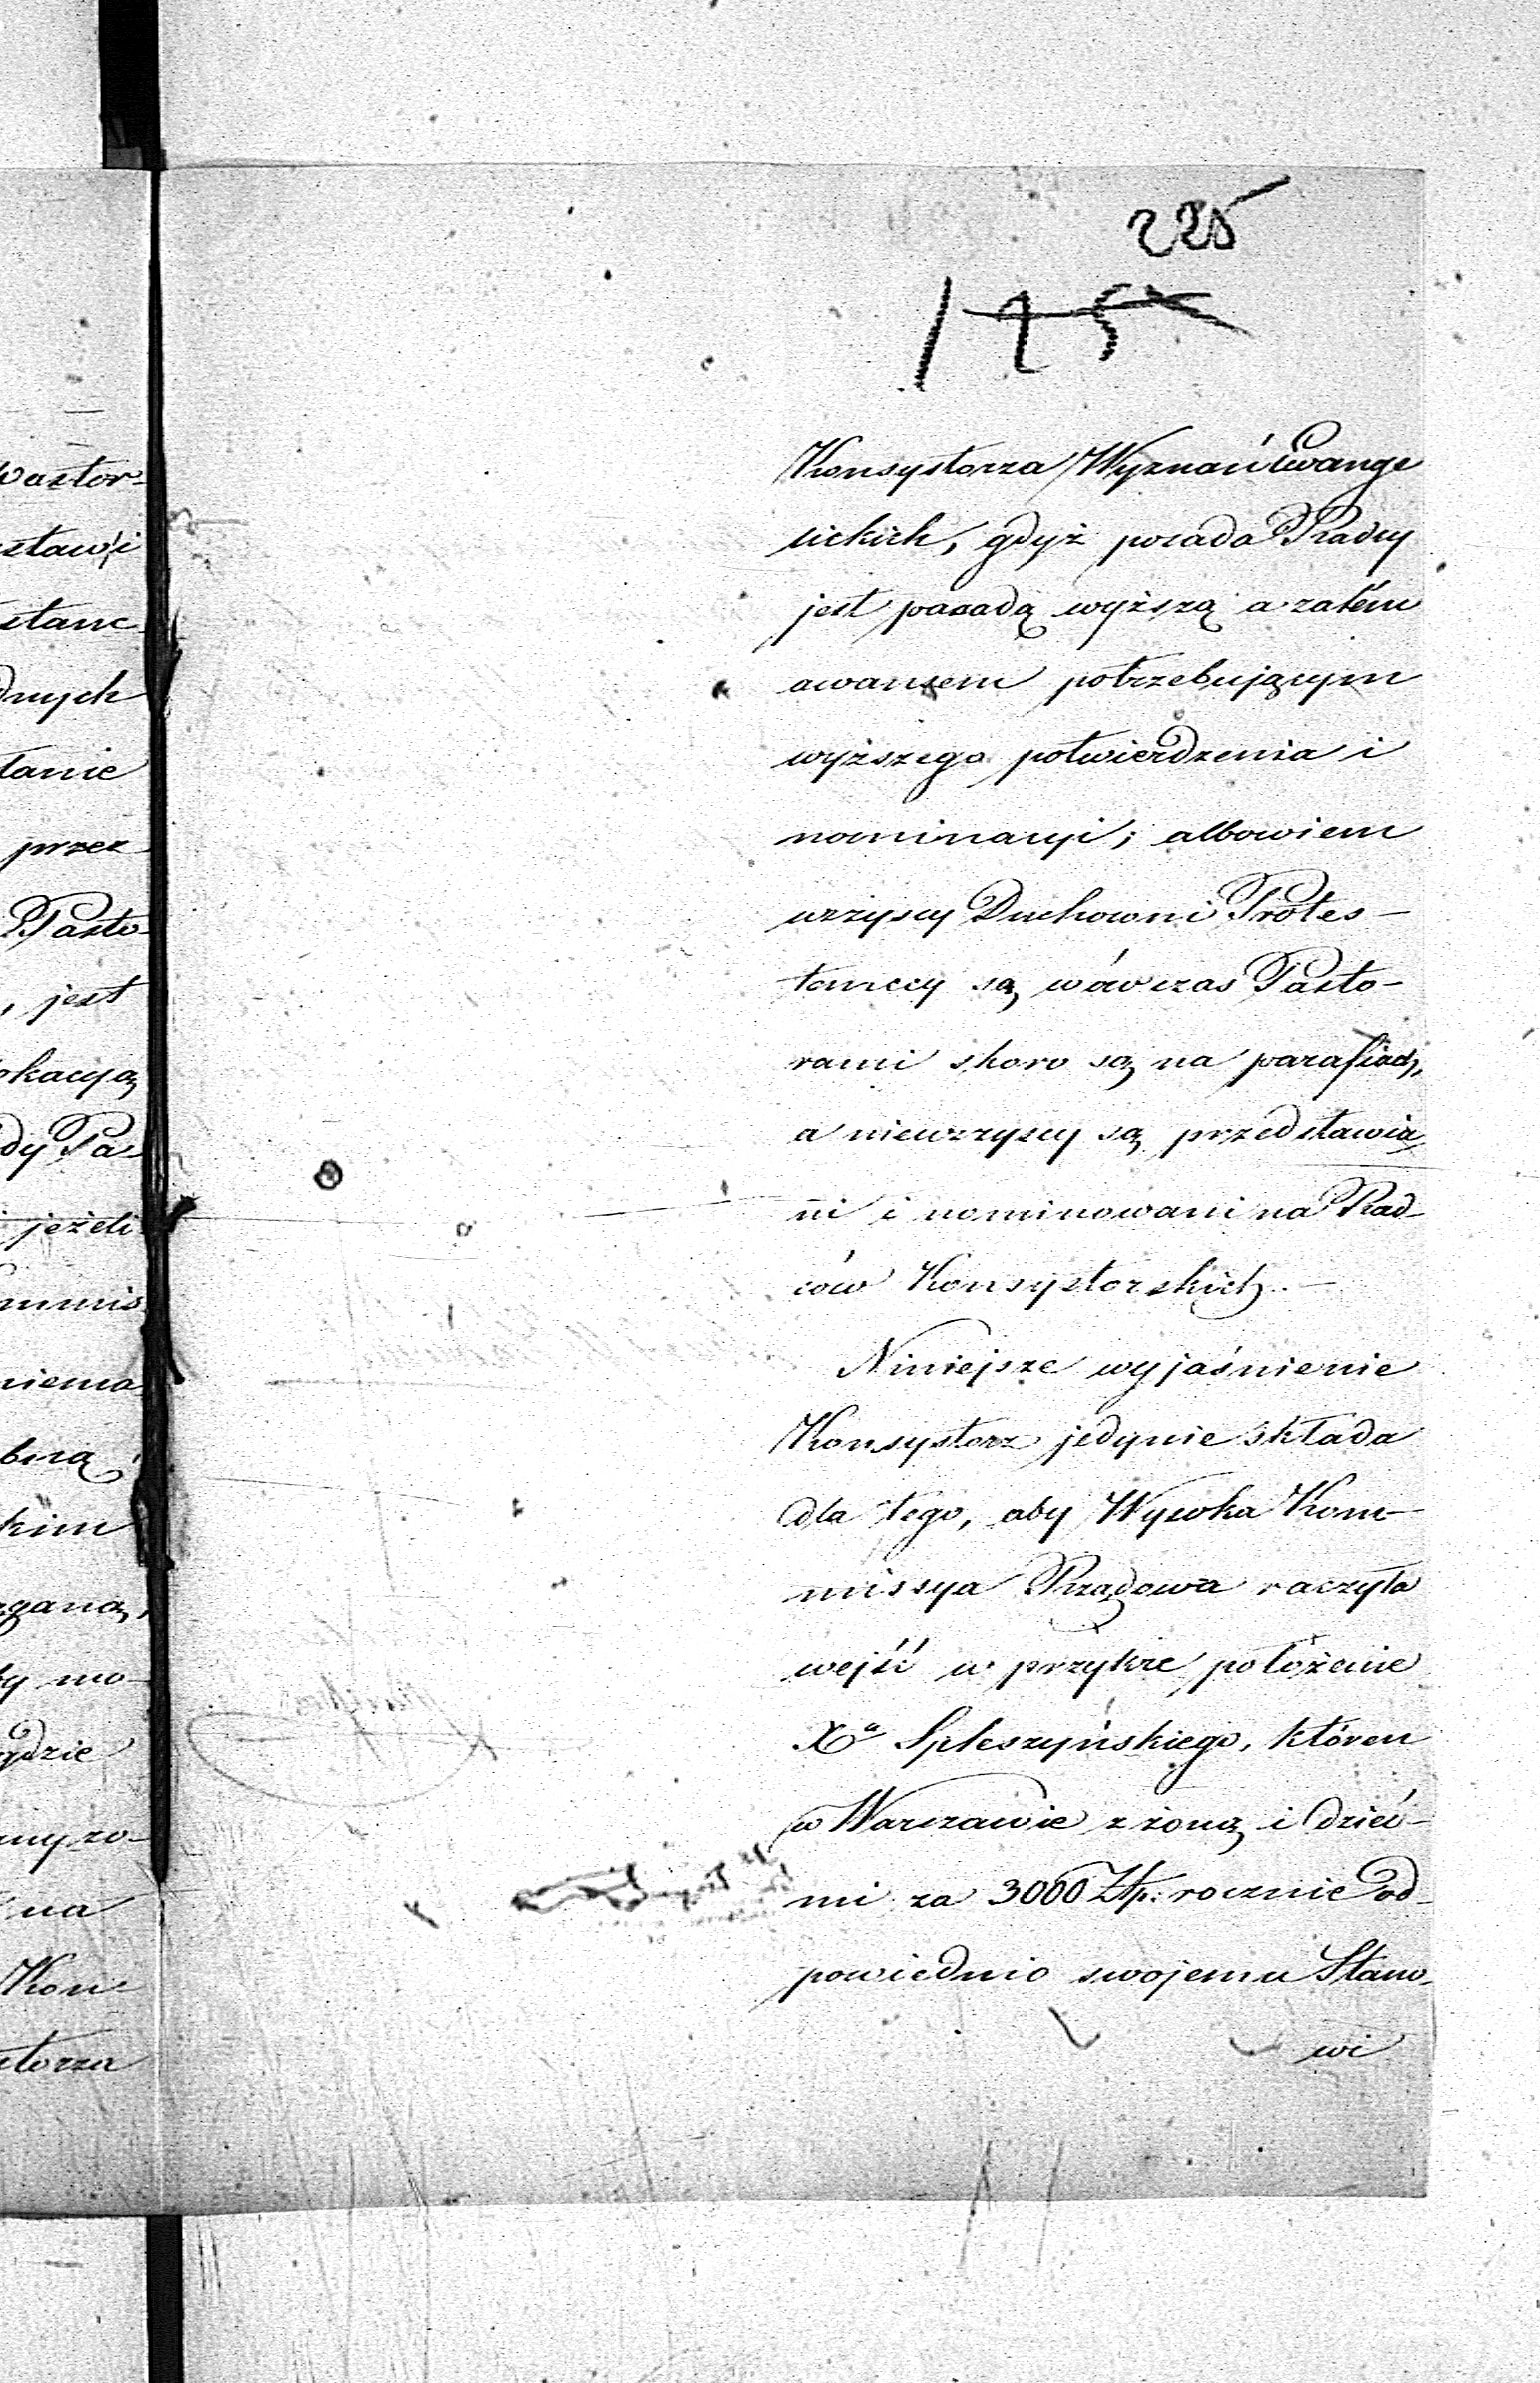 225
125
Konsystorza Wyznań Ewange
lickich, gdyż posada Radcy
jest posadą wyższą a zatém
awansem potrzebującym
wyższego potwierdzenia i
nominacyi; albowiem
wszyscy Duchowni Protes-
tanccy są wówczas Pasto-
rami skoro są na parafiach,
a niewszyscy są przedstawia
ni i nominowani na Rad-
ców Konsystorskich. —
Niniejsze wyjaśnienie
Konsystorz jedynie składa
dla tego, aby Wysoka Kom-
missya Rządowa raczyła
wejść w przykre położenie
Xa Spleszyńskiego, któren
w Warszawie z żoną i dzieć-
mi za 3000 Złp. rocznie od-
powiednio swojemu Stano-
wi
astor-
staw i
stanc
dnych
tanie
przez
Pasto-
, jest
okacyą
dy Pa
jeżeli
mmis
niema
bną
kim
gana,
by mo-
gdzie
my zo-
na
Kon-
storza